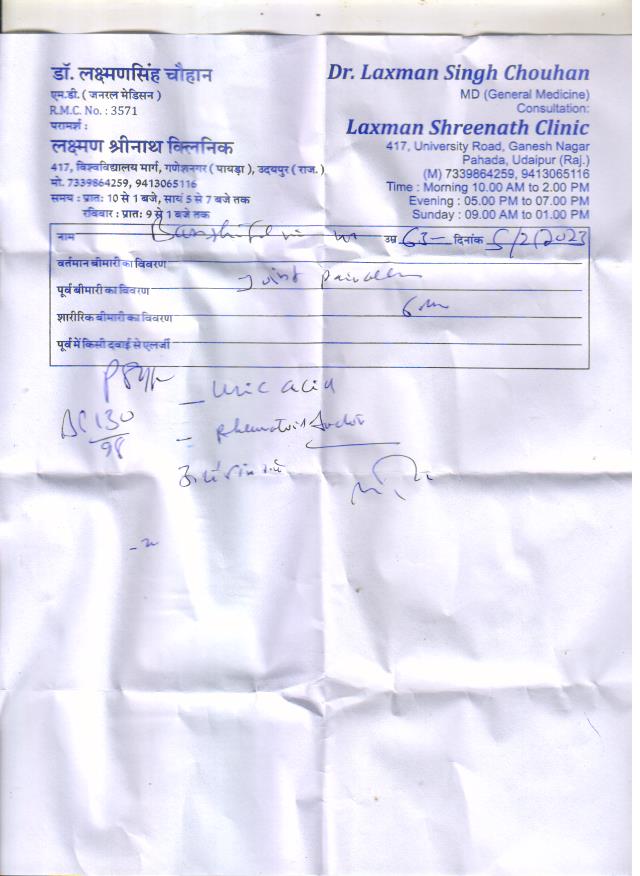 डॉ. लक्ष्मणसिंह चौहान
एम.डी. ( जनरल मेडिसन )
R.M.C. No. : 3571
परामर्श :
लक्ष्मण श्रीनाथ क्लिनिक
417, विश्वविद्यालय मार्ग, गणेशनगर ( पायड़ा ), उदयपुर ( राज. )
मो. 7339864259, 9413065116
समय : प्रातः 10 से 1 बजे, सायं 5 से 7 बजे तक
रविबार : प्रातः 9 से 1 बजे तक
Dr. Laxman Singh Chouhan
MD (General Medicine)
Consultation:
Laxman Shreenath Clinic
417, University Road, Ganesh Nagar
Pahada, Udaipur (Raj.)
(M) 7339864259, 9413065116
Time : Morning 10.00 AM to 2.00 PM
Evening : 05.00 PM to 07.00 PM
Sunday : 09.00 AM to 01.00 PM
नाम उम्र 63 दिनांक 5/2/2023
वर्तमान बीमारी का विवरण
पूर्व बीमारी का विवरण Joint pain
शारीरिक बीमारी का विवरण
पूर्व में किसी दवाई से एलर्जी
- uric acid
130
98